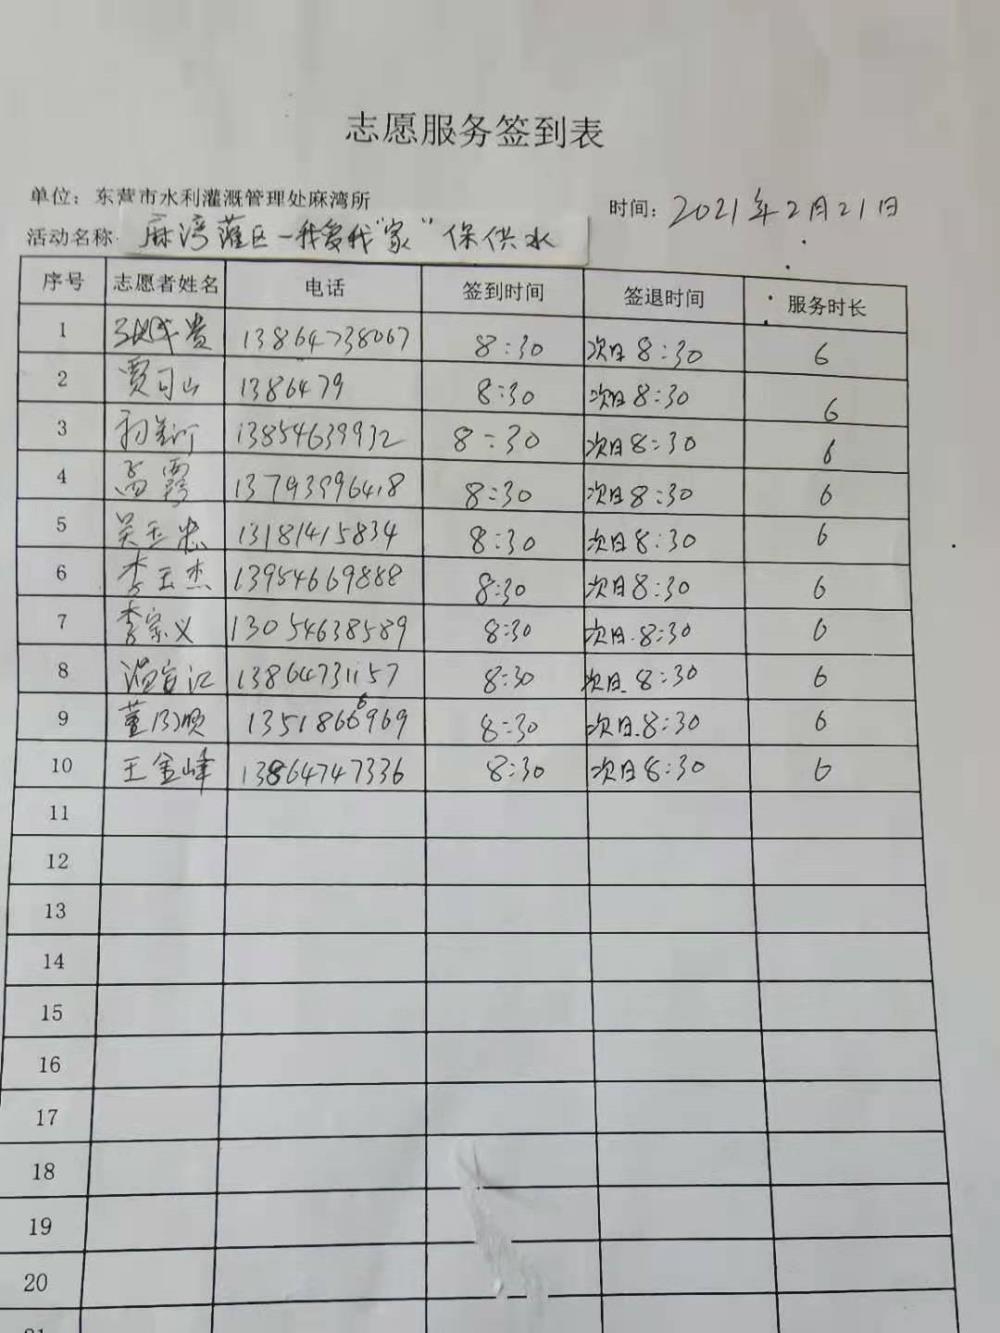 志愿服务签到表
单位：东营市水利灌溉管理处麻湾所
时间：2021年2月21日
活动名称 麻湾灌区一我爱我"家"保供水
序号 志愿者姓名 电话 签到时间 签退时间 服务时长
1 贵 13864738067 8:30 次日8:30 6
2 贾司山 1386479 8:30 次日8:30 6
3 13854639932 8:30 次日8:30 6
4 高霞 13793996418 8:30 次日8:30 6
5 吴玉忠 13181415834 8:30 次日8:30 6
6 李玉杰 13954669888 8:30 次日8:30 6
7 李宗义 13054638589 8:30 次日.8:30 6
8 温宜江 13864731157 8:30 次日.8:30 6
9 董 顺 13518666969 8:30 次日.8:30 6
10 王金峰 13864747336 8:30 次日8:30 6
11
12
13
14
15
16
17
18
19
20
21